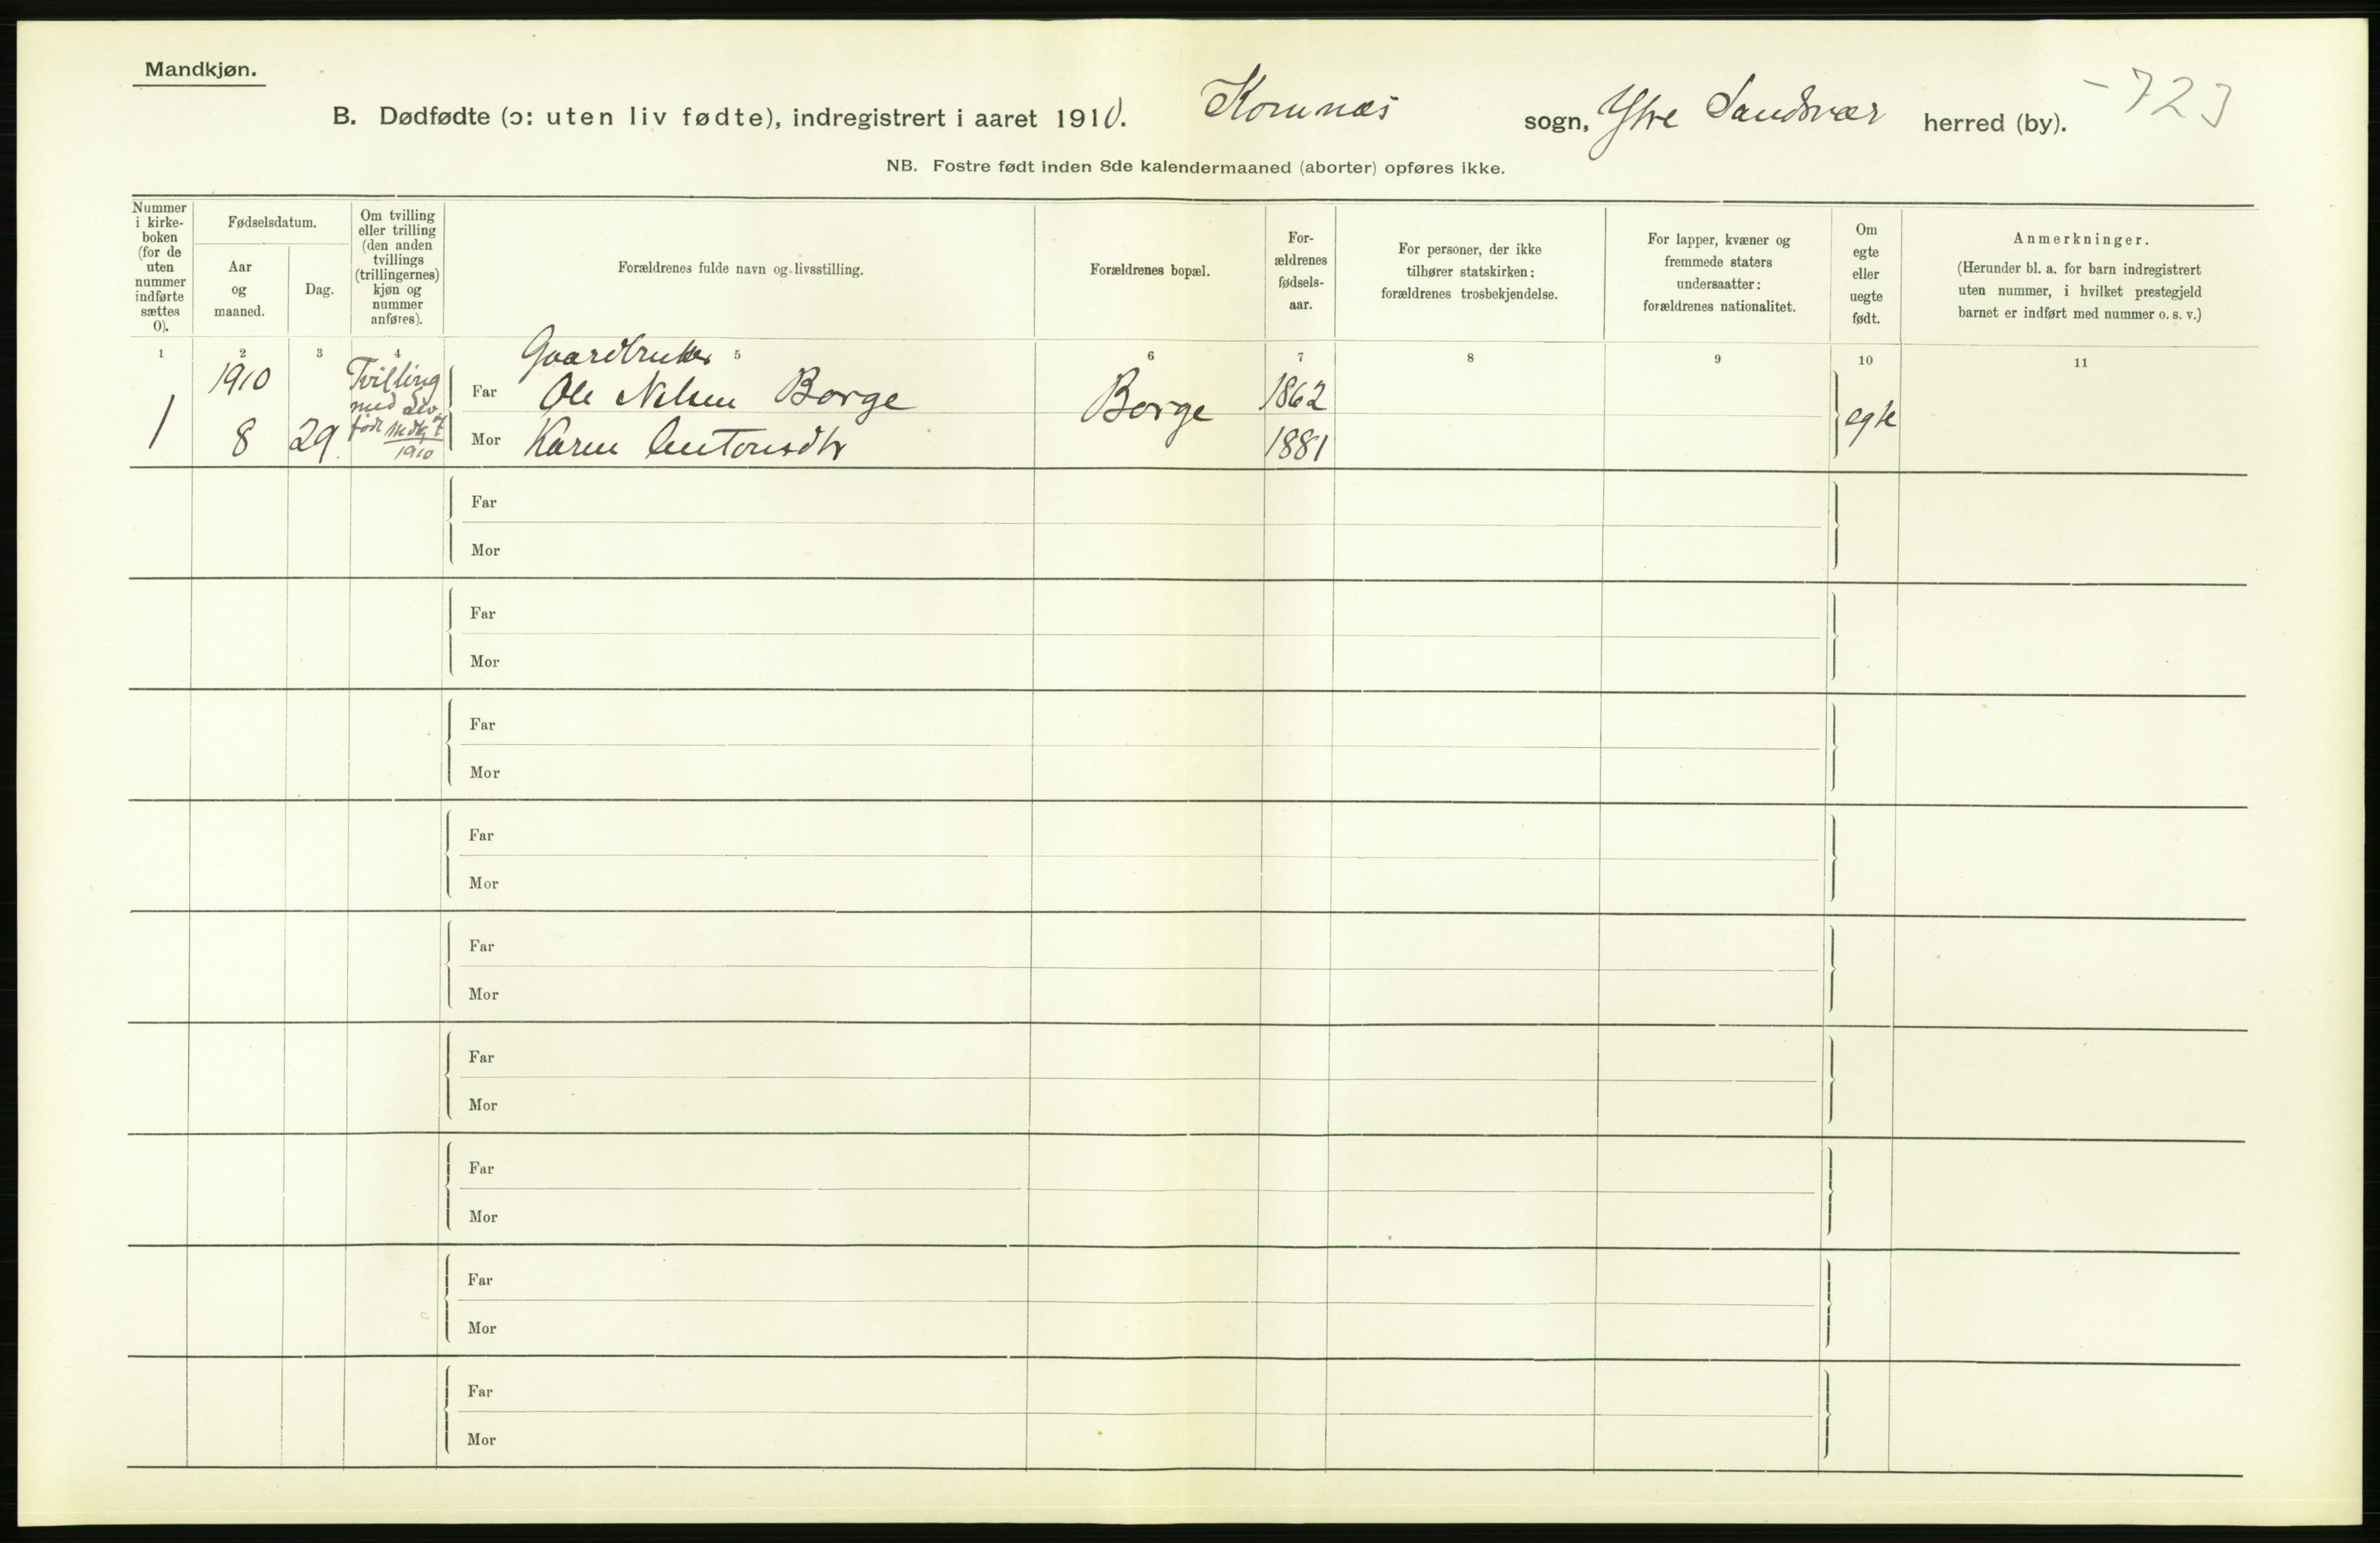 Mandkjøn.
B. Dødfødte (ɔ: uten liv fødte), indregistrert i aaret 1910. Komnæs sogn, Ytre Sandsvær herred (by). - 723
NB. Fostre født inden 8de kalendermaaned (aborter) opføres ikke.
Nummer
i kirke-
boken
(for de
uten
nummer
indførte
sættes
0).
Fødselsdatum.
Aar
og
maaned.
Dag.
Om tvilling
eller trilling
(den anden
tvillings
(trillingernes)
kjøn og
nummer
anføres).
Forældrenes fulde navn og livsstilling.
Forældrenes bopæl.
For-
ældrenes
fødsels-
aar.
For personer, der ikke
tilhører statskirken:
forældrenes trosbekjendelse.
For lapper, kvæner og
fremmede staters
undersaatter:
forældrenes nationalitet.
Om
egte
eller
uegte
født.
Anmerkninger.
(Herunder bl. a. for barn indregistrert
uten nummer, i hvilket prestegjeld
barnet er indført med nummer o. s. v.)
1 2 3 4 5 6 7 8 9 10 11
1
1910
8
29.
Tvilling
med Lev.
født Mdkj 7
1910
Gaardbruker
Far Ole Nilsen Borge
Mor Karen Antonsdtr
Borge
1862
1881
egte
Far
Mor
Far
Mor
Far
Mor
Far
Mor
Far
Mor
Far
Mor
Far
Mor
Far
Mor
Far
Mor